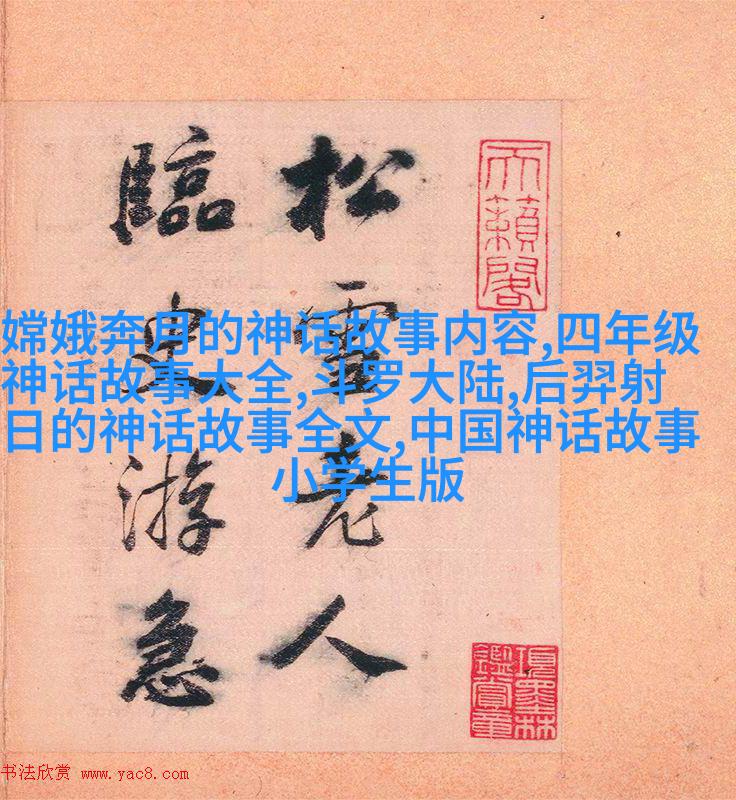 天籟閣
松雪老人
臨史游急
項墨林
鑑賞章
嫦娥奔月的神话故事内容,四年级
神话故事大全,斗罗大陆,后羿射
日的神话故事全文,中国神话故事
小学生版
书法欣赏 www.yac8.com